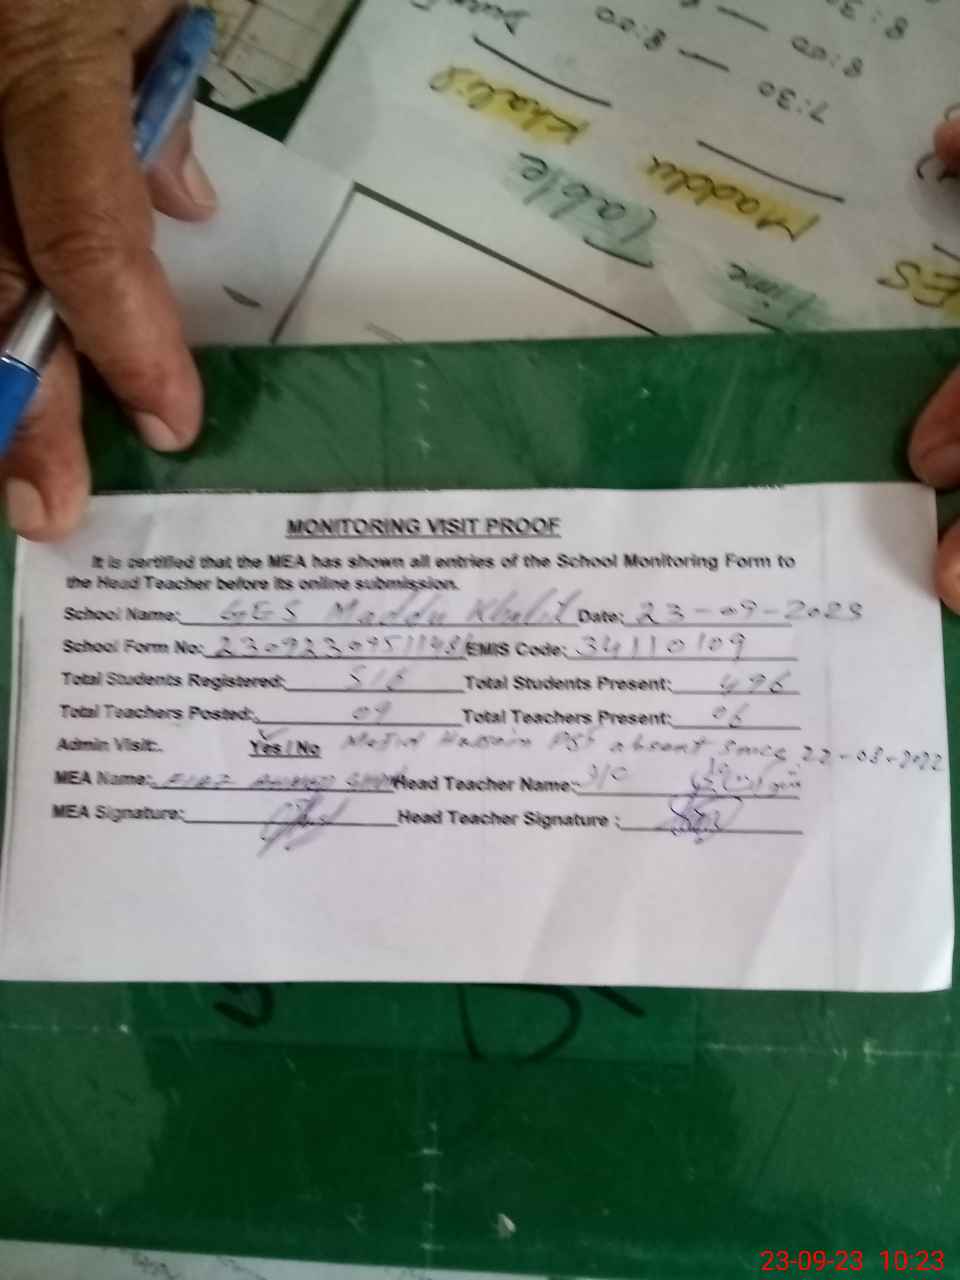 8:30
8:00 — 
7:30 — 8:00
Maddu Khalil
Time Table
ES
MONITORING VISIT PROOF
It is certified that the MEA has shown all entries of the School Monitoring Form to
the Head Teacher before its online submission.
School Name: GES Maddu Khalil Date: 23-09-2023
School Form No: EMIS Code: 34110109
Total Students Registered: 516 Total Students Present: 496
Total Teachers Posted: 09 Total Teachers Present: 06
Admin Visit:. Yes / No Hussain PST absent since 22-08-2022
MEA Name: Head Teacher Name:
MEA Signature: Head Teacher Signature :
23-09-23 10:23